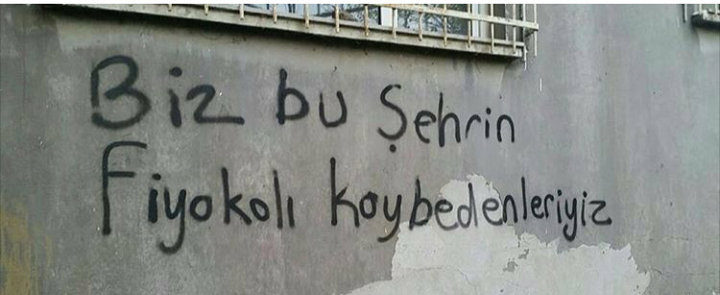 Biz bu Şehrin
Fiyokolı kaybedenleriyiz